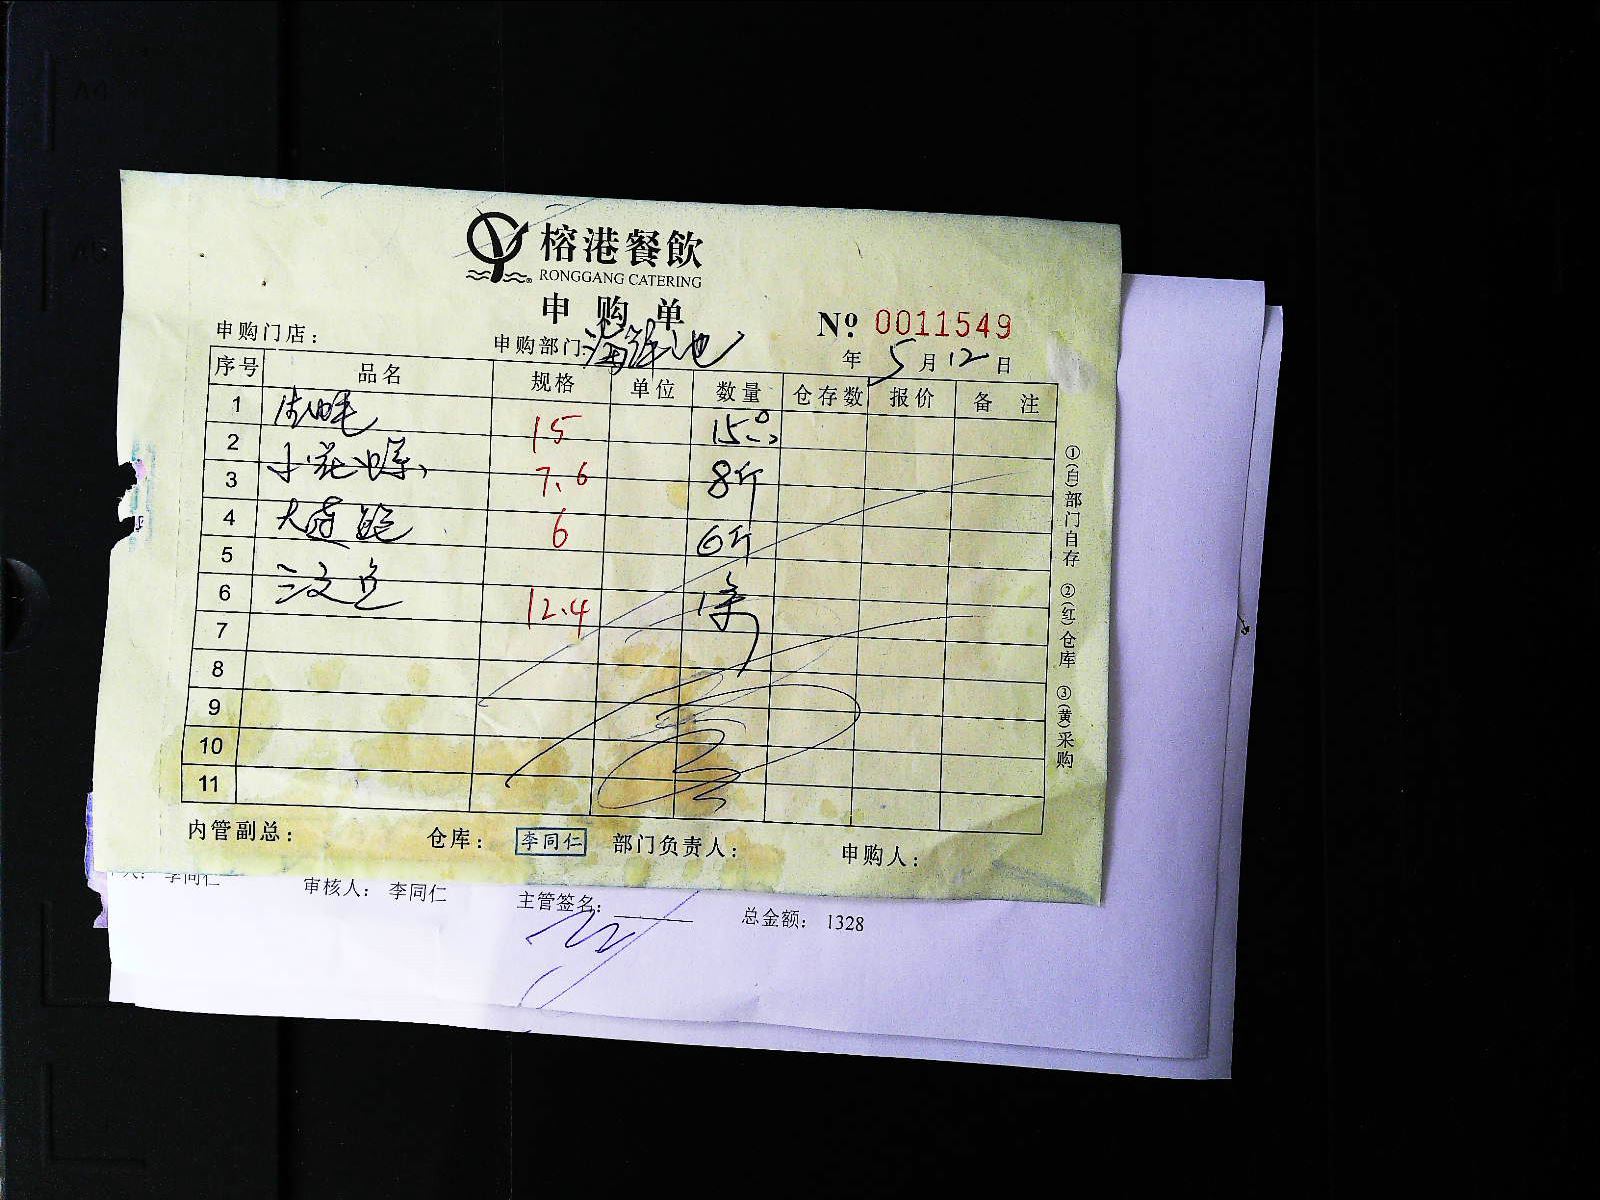 榕港餐飲
RONGGANG CATERING
申购单
№ 0011549
申购门店：
申购部门：海鲜池
年 5 月 12 日
序号 品名 规格 单位 数量 仓存数 报价 备注
1
15
2 小花螺
7.6 8斤
3
4 大连鲍
6 6斤
5
6 三文鱼
12.4 1条
7
8
9
10
11
①(白)部门自存 ②(红)仓库 ③(黄)采购
内管副总： 仓库： 李同仁 部门负责人： 申购人：
人： 李同仁 审核人： 李同仁 主管签名： 总金额： 1328